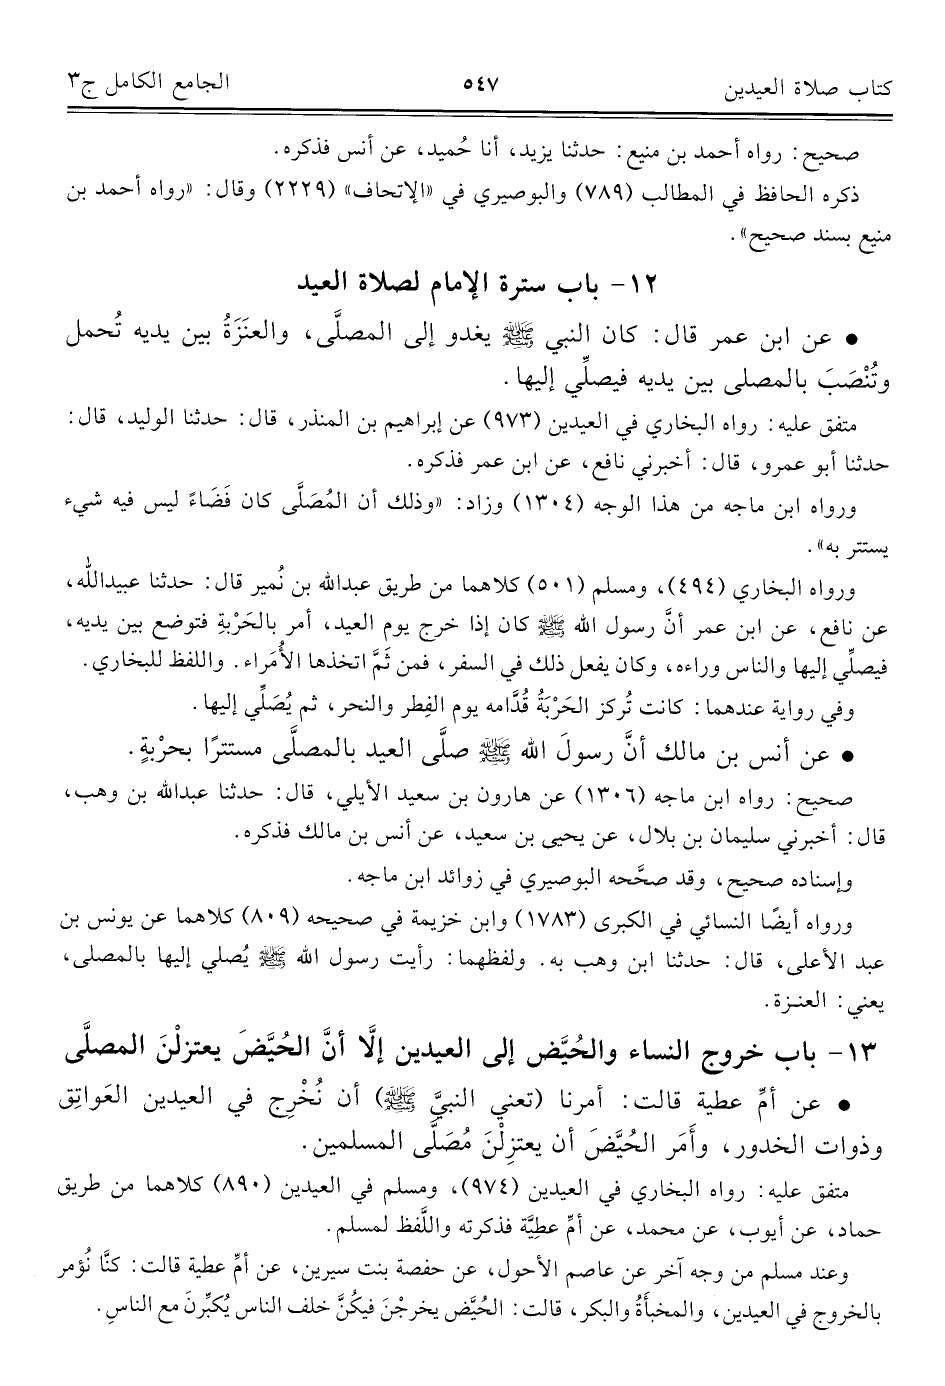 كتاب صلاة العيدين ٥٤٧ الجامع الكامل ج٣
صحيح: رواه أحمد بن منيع: حدثنا يزيد، أنا حُميد، عن أنس فذكره.
ذكره الحافظ في المطالب (٧٨٩) والبوصيري في «الإتحاف» (٢٢٢٩) وقال: «رواه أحمد بن
منيع بسند صحيح».
١٢- باب سترة الإمام لصلاة العيد
• عن ابن عمر قال: كان النبي ﷺ يغدو إلى المصلَّى، والعنَزَةُ بين يديه تُحمل
وتُنْصَبَ بالمصلى بين يديه فيصلِّي إليها.
متفق عليه: رواه البخاري في العيدين (٩٧٣) عن إبراهيم بن المنذر، قال: حدثنا الوليد، قال:
حدثنا أبو عمرو، قال: أخبرني نافع، عن ابن عمر فذكره.
ورواه ابن ماجه من هذا الوجه (١٣٠٤) وزاد: «وذلك أن المُصَلَّى كان فَضَاءً ليس فيه شيء
يستتر به».
ورواه البخاري (٤٩٤)، ومسلم (٥٠١) كلاهما من طريق عبدالله بن نُمير قال: حدثنا عبيدالله،
عن نافع، عن ابن عمر أنَّ رسول الله ﷺ كان إذا خرج يوم العيد، أمر بالحَرْبةِ فتوضع بين يديه،
فيصلِّي إليها والناس وراءه، وكان يفعل ذلك في السفر، فمن ثَمَّ اتخذها الأُمَراء. واللفظ للبخاري.
وفي رواية عندهما: كانت تُركز الحَرْبَةُ قُدَّامه يوم الفِطر والنحر، ثم يُصَلِّي إليها.
• عن أنس بن مالك أنَّ رسولَ الله ﷺ صلَّى العيد بالمصلَّى مستترًا بحرْبةٍ.
صحيح: رواه ابن ماجه (١٣٠٦) عن هارون بن سعيد الأيلي، قال: حدثنا عبدالله بن وهب،
قال: أخبرني سليمان بن بلال، عن يحيى بن سعيد، عن أنس بن مالك فذكره.
وإسناده صحيح، وقد صحَّحه البوصيري في زوائد ابن ماجه.
ورواه أيضًا النسائي في الكبرى (١٧٨٣) وابن خزيمة في صحيحه (٨٠٩) كلاهما عن يونس بن
عبد الأعلى، قال: حدثنا ابن وهب به. ولفظهما: رأيت رسول الله ﷺ يُصلي إليها بالمصلى،
يعني: العنـزة.
١٣- باب خروج النساء والحُيَّض إلى العيدين إلَّا أنَّ الحُيَّضَ يعتزلْنَ المصلَّى
• عن أمِّ عطية قالت: أمرنا (تعني النبيَّ ﷺ) أن نُخْرِج في العيدين العَواتِق
وذوات الخدور، وأَمَر الحُيَّضَ أن يعتزِلْنَ مُصَلَّى المسلمين.
متفق عليه: رواه البخاري في العيدين (٩٧٤)، ومسلم في العيدين (٨٩٠) كلاهما من طريق
حماد، عن أيوب، عن محمد، عن أمِّ عطيَّة فذكرته واللَّفظ لمسلم.
وعند مسلم من وجه آخر عن عاصم الأحول، عن حفصة بنت سيرين، عن أمِّ عطية قالت: كنَّا نُؤمر
بالخروج في العيدين، والمخبأَةُ والبكر، قالت: الحُيَّض يخرجْنَ فيكُنَّ خلف الناس يُكبِّرنَ مع الناسِ.